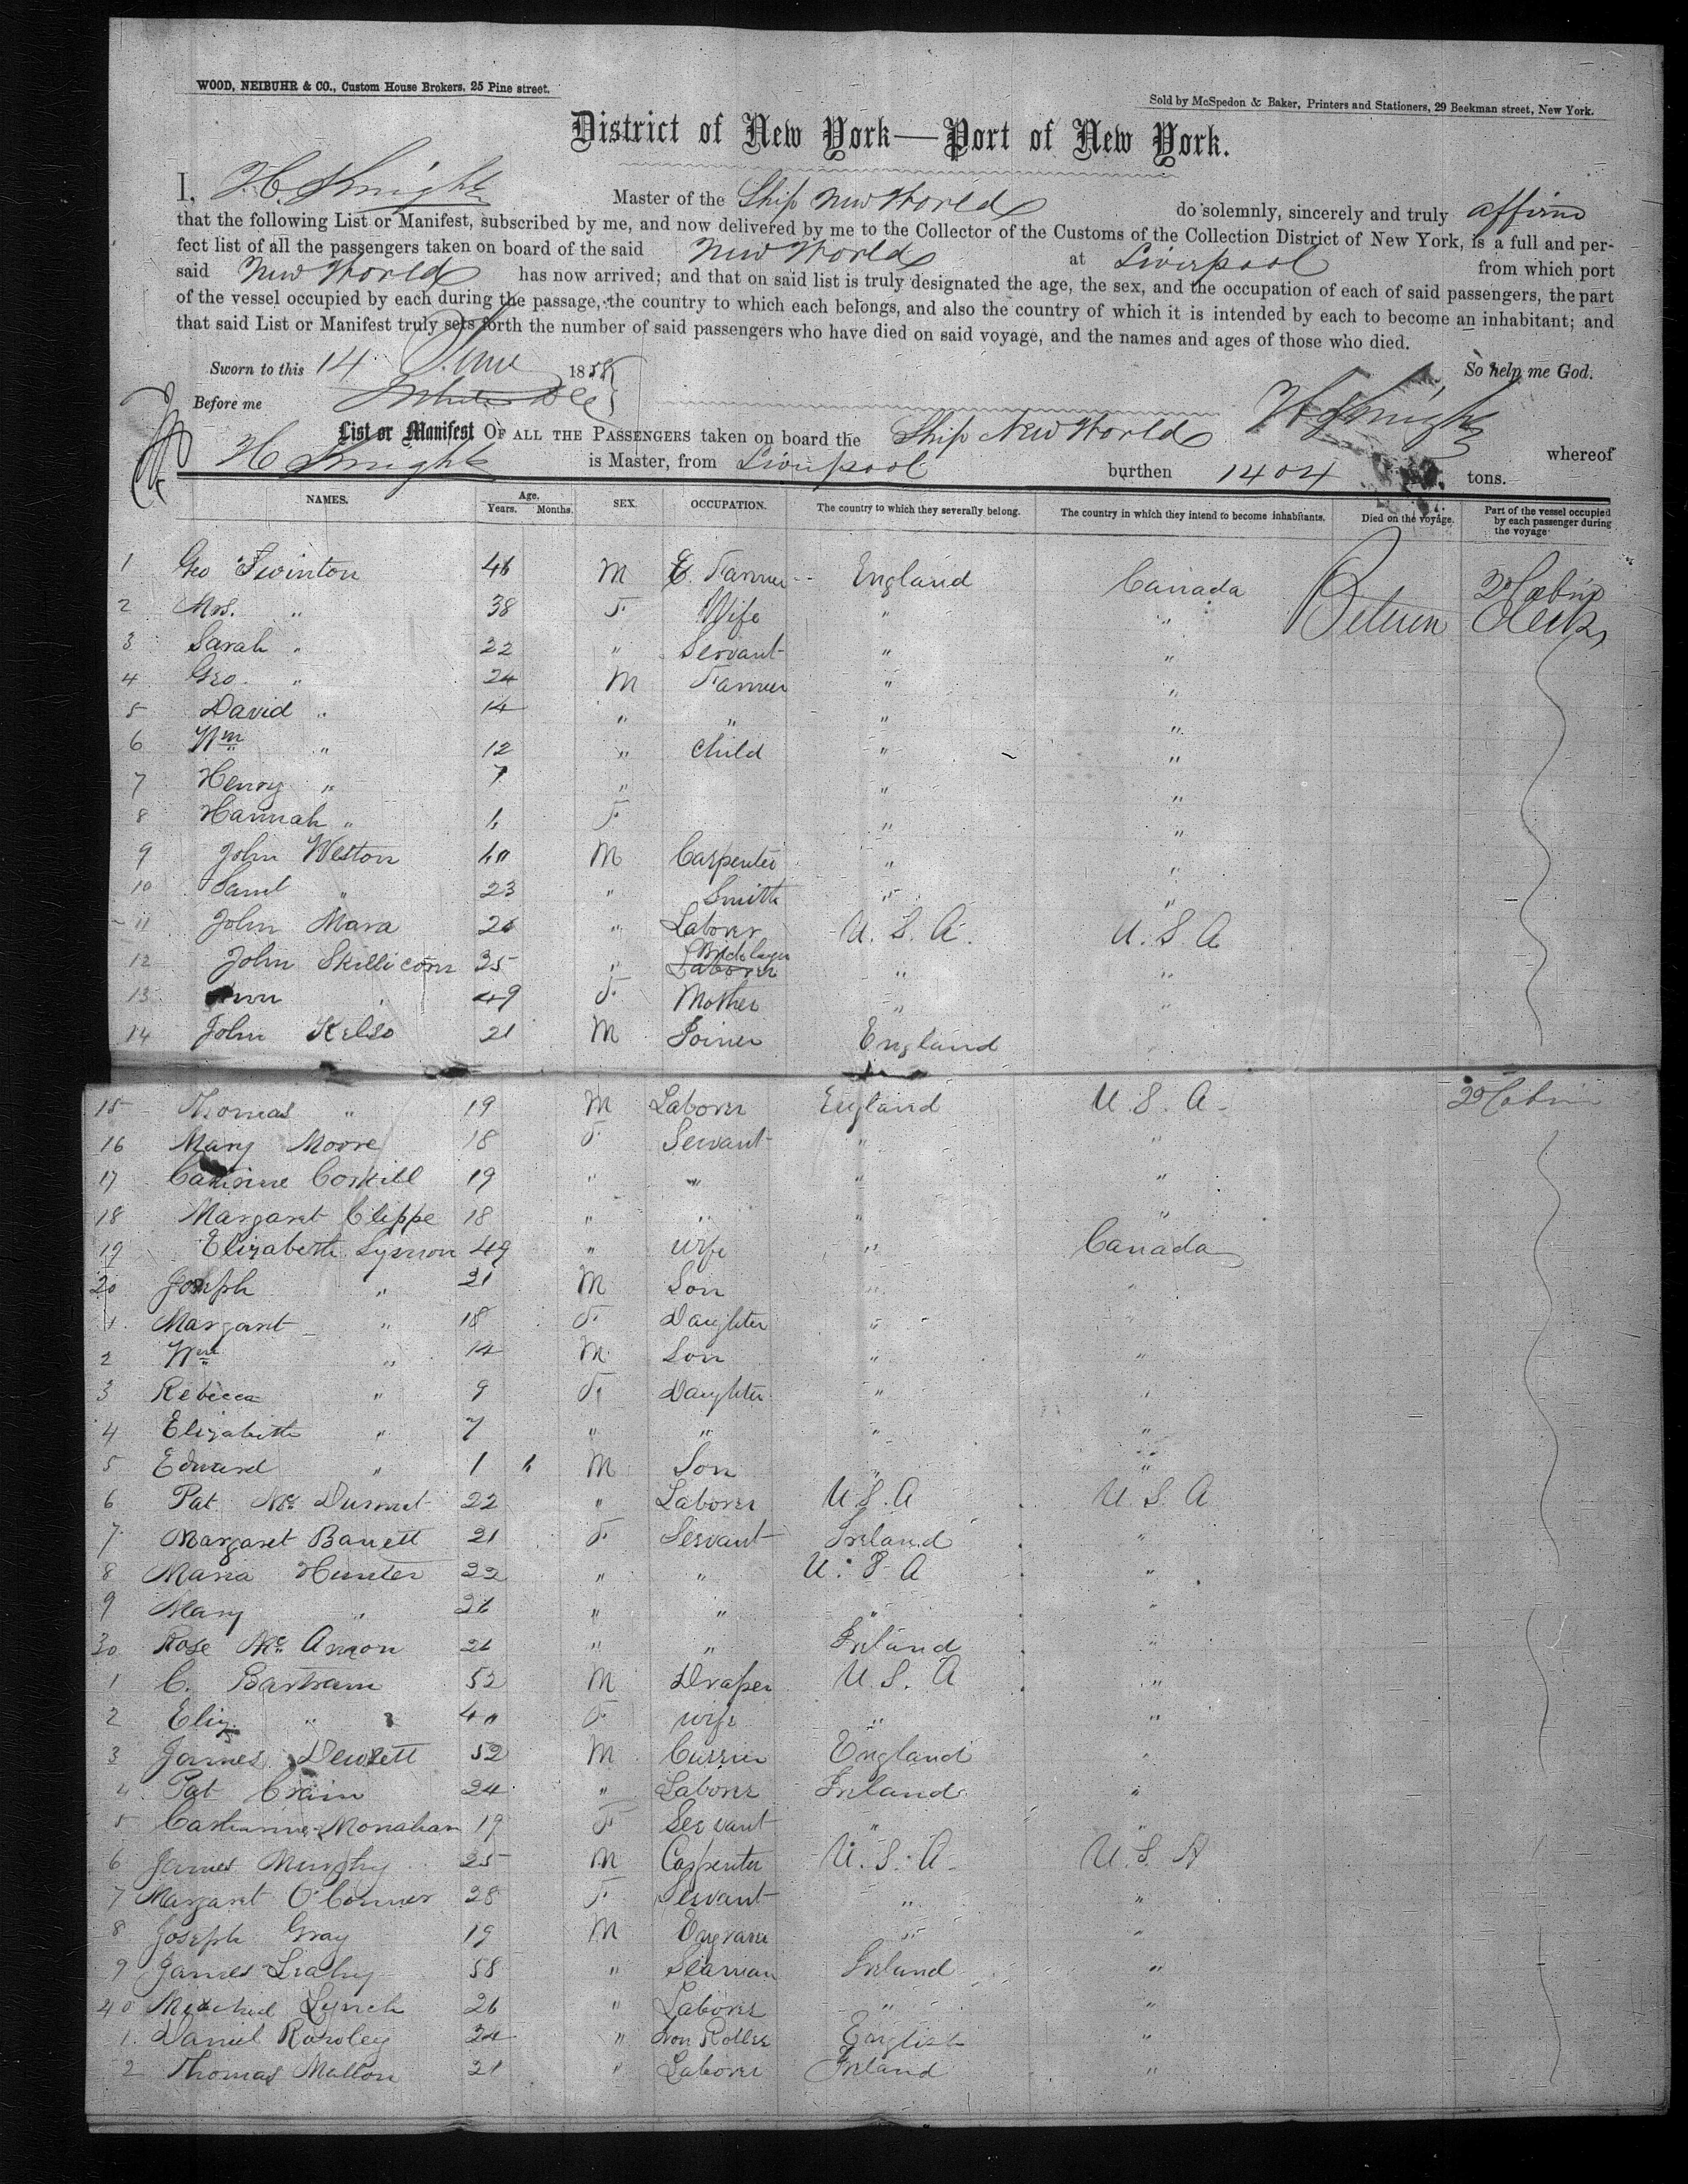 WOOD, NEIBUHR & CO., Custom House Brokers, 25 Pine street.
Sold by McSpedon & Baker, Printers and Stationers, 29 Beekman street, New York.
District of New York—Port of New York.
I, H Knight Master of the Ship New World do solemnly, sincerely and truly affirm
that the following List or Manifest, subscribed by me, and now delivered by me to the Collector of the Customs of the Collection District of New York, is a full and per-
fect list of all the passengers taken on board of the said New World at Liverpool from which port
said New World has now arrived; and that on said list is truly designated the age, the sex, and the occupation of each of said passengers, the part
of the vessel occupied by each during the passage, the country to which each belongs, and also the country of which it is intended by each to become an inhabitant; and
that said List or Manifest truly sets forth the number of said passengers who have died on said voyage, and the names and ages of those who died.
Sworn to this 14 June 1858 So help me God.
Before me H Knight
List or Manifest OF ALL THE PASSENGERS taken on board the Ship New World whereof
H Knight is Master, from Liverpool burthen 1404 tons.
NAMES. Age. Years. Months. SEX. OCCUPATION. The country to which they severally belong. The country in which they intend to become inhabitants. Died on the voyage. Part of the vessel occupied by each passenger during the voyage
1 Geo Swinton 46 M Farmer England Canada 2d Cabin
2 Mrs. " 38 F Wife " " Between Decks
3 Sarah " 22 " Servant " "
4 Geo. " 24 M Farmer " "
5 David " 14 " " " "
6 Wm " 12 " Child " "
7 Henry " 7 " " "
8 Hannah " F " "
9 John Weston 40 M Carpenter " "
10 Saml " 23 " Smith " "
11 John Mara 26 " Laborer U. S. A. U. S. A
12 John Skillicorn 35 " Bricklayer " "
13 Ann " 49 F Mother " "
14 John Kelso 21 M Joiner England
15 Thomas " 19 M Laborer England U. S. A. 2d Cabin
16 Mary Moore 18 F Servant " "
17 Catherine Corkill 19 " " " "
18 Margaret Clippe 18 " " " "
19 Elizabeth 49 " wife " Canada
20 Joseph " 21 M Son " "
1 Margaret " 18 F Daughter " "
2 Wm " 14 M Son " "
3 Rebecca " 9 F Daughter " "
4 Elizabeth " 7 " " " "
5 Edward " 1 M Son " "
6 Pat Mc 22 " Laborer U. S. A U. S. A
7 Margaret Barrett 21 F Servant Ireland "
8 Maria Hunter 22 " " U. S. A "
9 Mary " 26 " " " "
30 Rose Mc 26 " " Ireland "
1 C. Bartram 52 M Draper U. S. A "
2 Eliz " 40 F wife " "
3 James 52 M Currier England "
4 Pat Crain 24 " Laborer Ireland "
5 Catharine Monahan 19 F Servant " "
6 James Murphy 25 M Carpenter U. S. A. U. S. A
7 Margaret O'Conner 28 F Servant " "
8 Joseph Gray 19 M Engraver " "
9 James Leahy 58 " Seaman Ireland "
40 Michael Lynch 26 " Laborer " "
1. Daniel Rowley 34 " Iron Roller English "
2 Thomas Mallon 21 " Laborer Ireland "